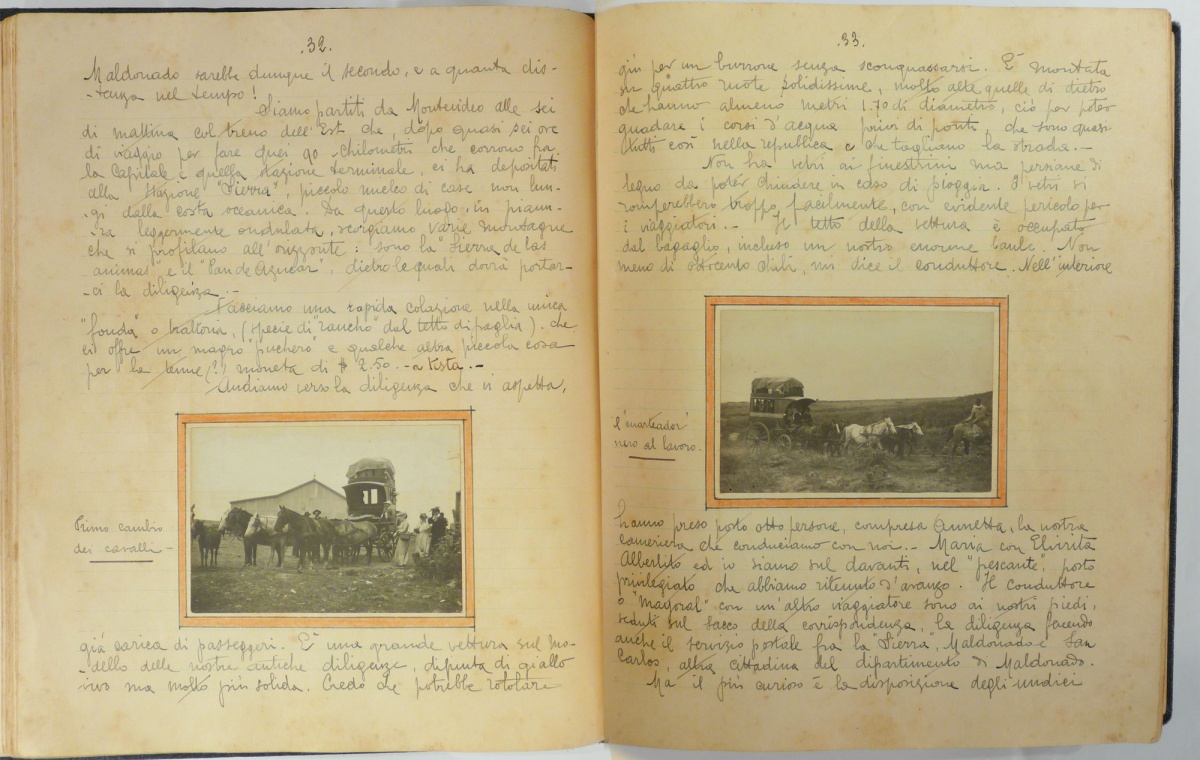 .32.
Maldonado sarebbe dunque il secondo, e a quanta dis-
-tanza nel tempo!
Siamo partiti da Montevideo alle sei
di mattina col treno dell'Est che, dopo quasi sei ore
di viaggio per fare quei 90 chilometri che corrono fra
la Capitale e quella stazione terminale, ci ha depositati
alla stazione "Sierra", piccolo nucleo di case non lun-
-gi dalla costa oceanica. Da questo luogo, in pianu-
-ra leggermente ondulata, scorgiamo varie montagne
che si profilano all'orizzonte: sono la "Sierra de las
animas" e il "Pan de Azucar", dietro le quali dovrà portar-
-ci la diligenza.
Facciamo una rapida colazione nella unica
"fonda" o trattoria, (specie di "rancho" dal tetto di paglia) che
ci offre un magro "puchero" e qualche altra piccola cosa
per la tenue (?) moneta di $ 2.50.- a testa.-
Andiamo verso la diligenza che ci aspetta,
Primo cambio
dei cavalli-
già carica di passeggeri. È una grande vettura sul mo-
dello delle nostre antiche diligenze, dipinta di giallo
ma molto più solida. Credo che potrebbe rotolare
.33.
giù per un burrone senza sconquassarsi. È montata
su quattro ruote solidissime, molto alte quelle di dietro
che hanno almeno metri 1.70 di diametro, ciò per poter
guadare i corsi d'acqua privi di ponti, che sono quasi
tutti così nella republica e che tagliano la strada.-
Non ha vetri ai finestrini ma persiane di
legno da poter chiudere in caso di pioggia. I vetri si
romperebbero troppo facilmente, con evidente pericolo per
i viaggiatori.- Il tetto della vettura è occupato
dal bagaglio, incluso un nostro enorme baule. Non
meno di ottocento chili, mi dice il conduttore. Nell'interiore
l'"cuarteador"
nero al lavoro.
hanno preso posto otto persone, compresa Annetta, la nostra
cameriera che conduciamo con noi.- Maria con Elvirita
Albertito ed io siamo sul davanti, nel "pescante", posto
privilegiato che abbiamo ritenuto d'avanzo. Il conduttore
o "mayoral" con un'altro viaggiatore sono ai nostri piedi,
seduti sul sacco della corrispondenza, la diligenza facendo
anche il servizio postale fra la "Sierra", Maldonado e San
Carlos, altra cittadina del dipartimento di Maldonado.
Ma il più curioso è la disposizione degli undici